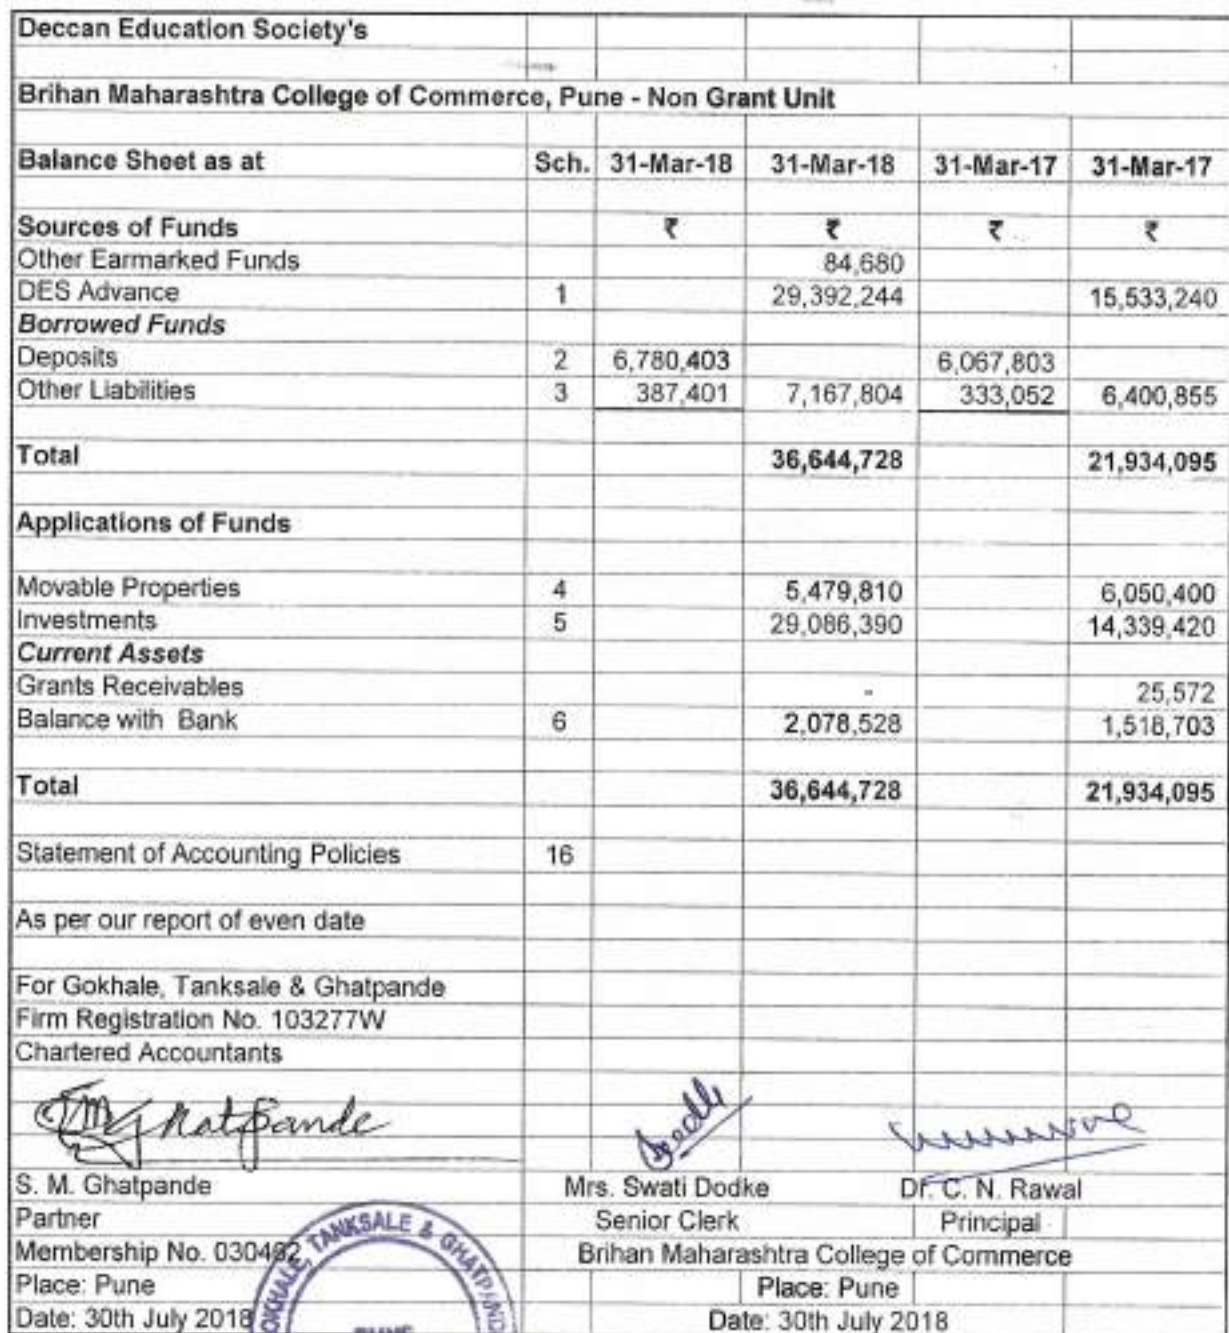 Deccan Education Society's
Brihan Maharashtra College of Commerce, Pune - Non Grant Unit
Balance Sheet as at Sch. 31-Mar-18 31-Mar-18 31-Mar-17 31-Mar-17
Sources of Funds ₹ ₹ ₹ ₹
Other Earmarked Funds 84,680
DES Advance 1 29,392,244 15,533,240
Borrowed Funds
Deposits 2 6,780,403 6,067,803
Other Liabilities 3 387,401 7,167,804 333,052 6,400,855
Total 36,644,728 21,934,095
Applications of Funds
Movable Properties 4 5,479,810 6,050,400
Investments 5 29,086,390 14,339,420
Current Assets
Grants Receivables - 25,572
Balance with Bank 6 2,078,528 1,518,703
Total 36,644,728 21,934,095
Statement of Accounting Policies 16
As per our report of even date
For Gokhale, Tanksale & Ghatpande
Firm Registration No. 103277W
Chartered Accountants
S. M. Ghatpande Mrs. Swati Dodke Dr. C. N. Rawal
Partner Senior Clerk Principal
Membership No. 030462 Brihan Maharashtra College of Commerce
Place: Pune Place: Pune
Date: 30th July 2018 Date: 30th July 2018
TANKSALE &